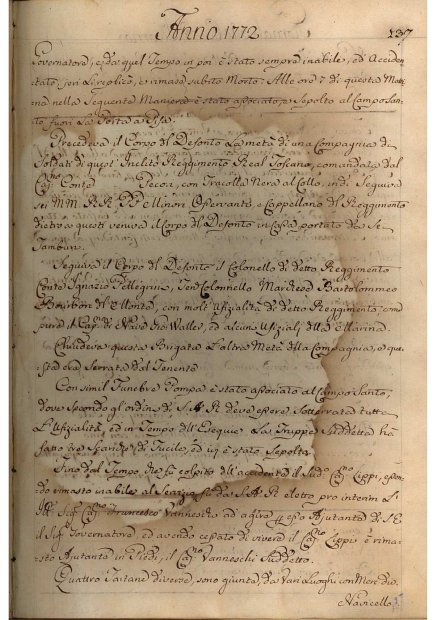 Anno 1772
137
Governatore, e da quel Tempo in poi è stato sempre inabile, ed Acciden
tato, jeri Le replicò, e rimase subito Morto: Alle ore 7 di questa Mat
ina nella Seguente Maniera è stato associato, e Sepolto al Campo San
to fuori La Porta a Pisa.
Precedeva il Corpo del Defonto La metà di una Compagnia di
Soldati di questo Inclito Reggimento Real Toscano, comandata dal
Cap.no Conte Pecori, con Tracolla Nera al Collo, indi Seguiva
sei RR. PP. Osservanti, e Cappellano del Reggimento
dietro a questi veniva il Corpo del Defonto in Cassa portato da Sei
Tamburi.
Seguiva il Corpo del Defonto il Colonello di detto Reggimento
Conte Ignazio Pellegrini, Ten. Colonnello Marchese Bartolommeo
Bourbon del Monte, con molti Ufizialità di detto Reggimento, come
pure il Cap. di Nave, ed alcuni Ufiziali della Marina.
Chiudeva questa Brigata L'altra Metà della Compagnia, e que
sta era Serrata dal Tenente
Con simil Funebre Pompa è stato associato al Campo Santo,
dove Secondo gl'ordini di S. A. R. deve essere Sotterrata tutta
L'Ufizialità, ed in Tempo dell'Esequie La Truppa Suddetta ha
fatto tre Scariche di Fucile, ed ivi è stato Sepolto
Fino dal Tempo, che fu colpito dall'accidente il Sud.o Cap.no Ceppi, essen
do rimasto inabile al Servizio fu da S. A. R. eletto pro interim L'
Ill. Sig. Cap.no Francesco Vanneschi ad agire per esso Ajutante di S. E.
il Sig. Governatore, ed avendo cessato di vivere il Cap.no Ceppi è rima
sto Ajutante in Piedi, il Cap.no Vanneschi Suddetto.
Quattro Tartane diverse, sono giunte, da Vari Luoghi con Merci, e
Navicello